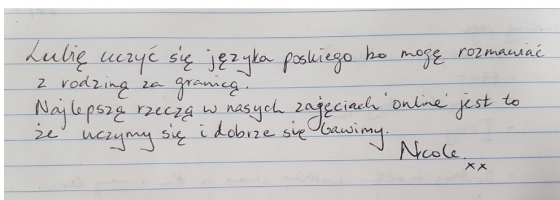 Lubię uczyć się języka poskiego bo mogę rozmawiać
z rodziną za granicą.
Najlepszą rzeczą w nasych zajęciach 'online' jest to
że uczymy się i dobrze się bawimy.
Nicole.
xx